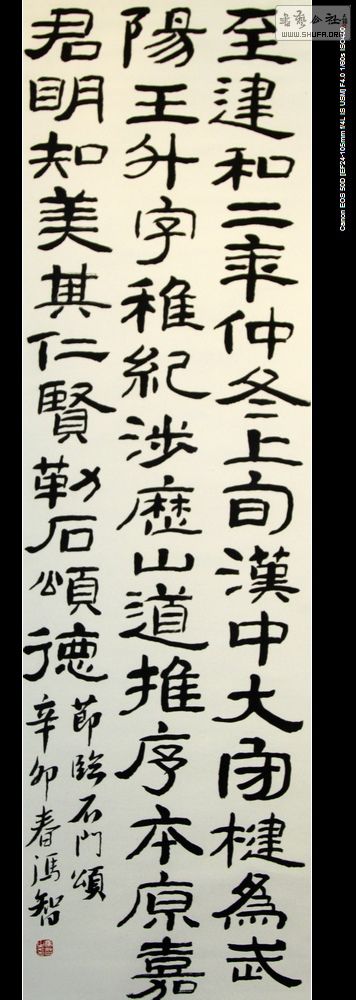 至建和二年仲冬上旬漢中大守楗為武
陽王升字稚紀涉歷山道推序本原嘉
君明知美其仁賢勒石頌德
節臨石門頌
辛卯春馮智
書藝公社
WWW.SHUFA.ORG
Canon EOS 50D [EF24-105mm f/4L IS USM] F4.0 1/60s ISO